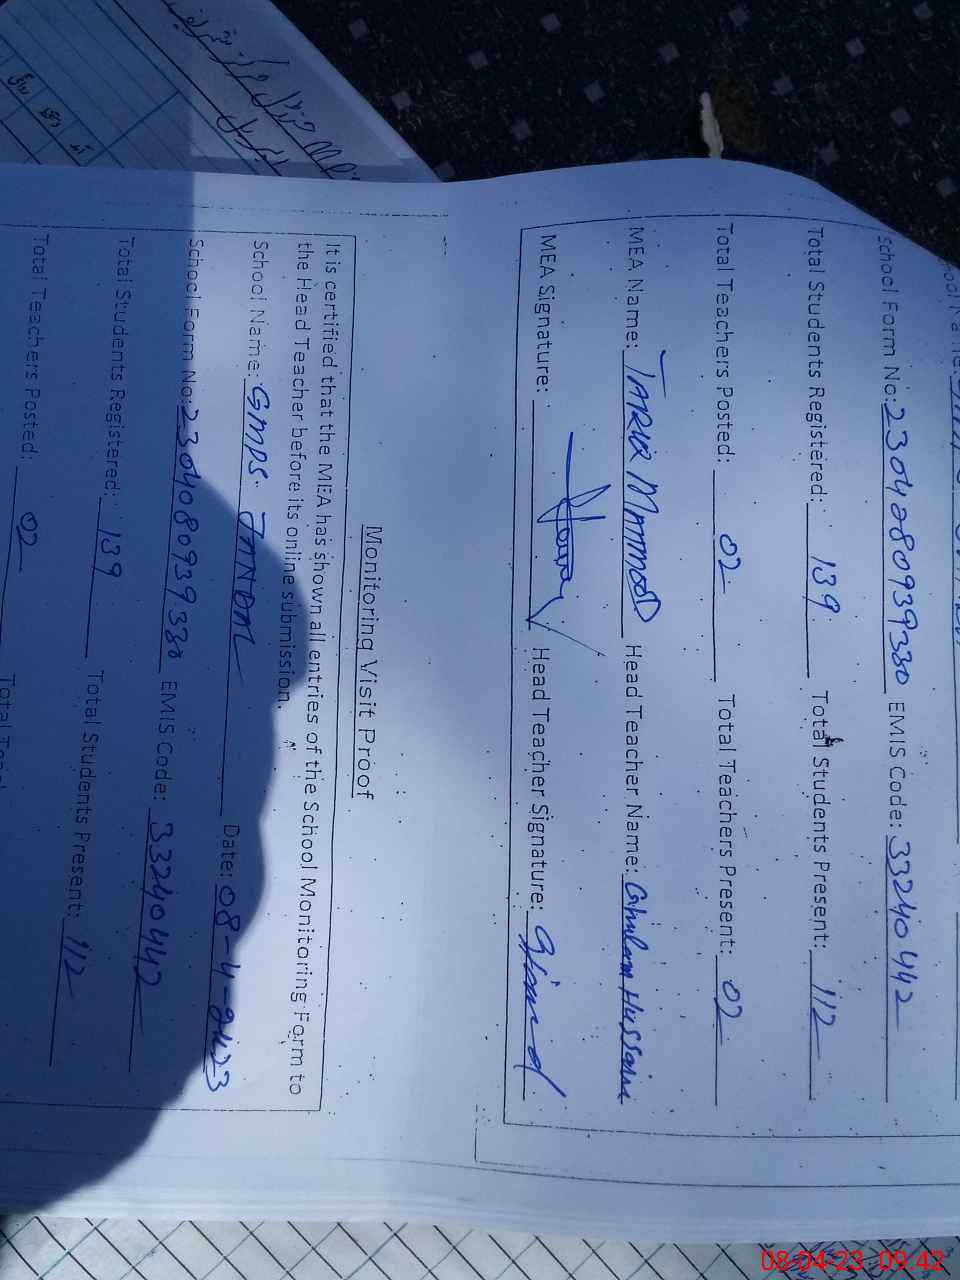 School Form No: 2304080939330 EMIS Code: 33240442
Total Students Registered: 139 Total Students Present: 112
Total Teachers Posted: 02 Total Teachers Present: 02
MEA Name: TARIQ MAHMOOD Head Teacher Name: Ghulam Hussain
MEA Signature: Head Teacher Signature:
Monitoring Visit Proof
It is certified that the MEA has shown all entries of the School Monitoring Form to
the Head Teacher before its online submission.
School Name: GMPS. Date: 08-4-2023
School Form No: 2304080939330 EMIS Code: 33240442
Total Students Registered: 139 Total Students Present: 112
Total Teachers Posted: 02
08-04-23 09:42